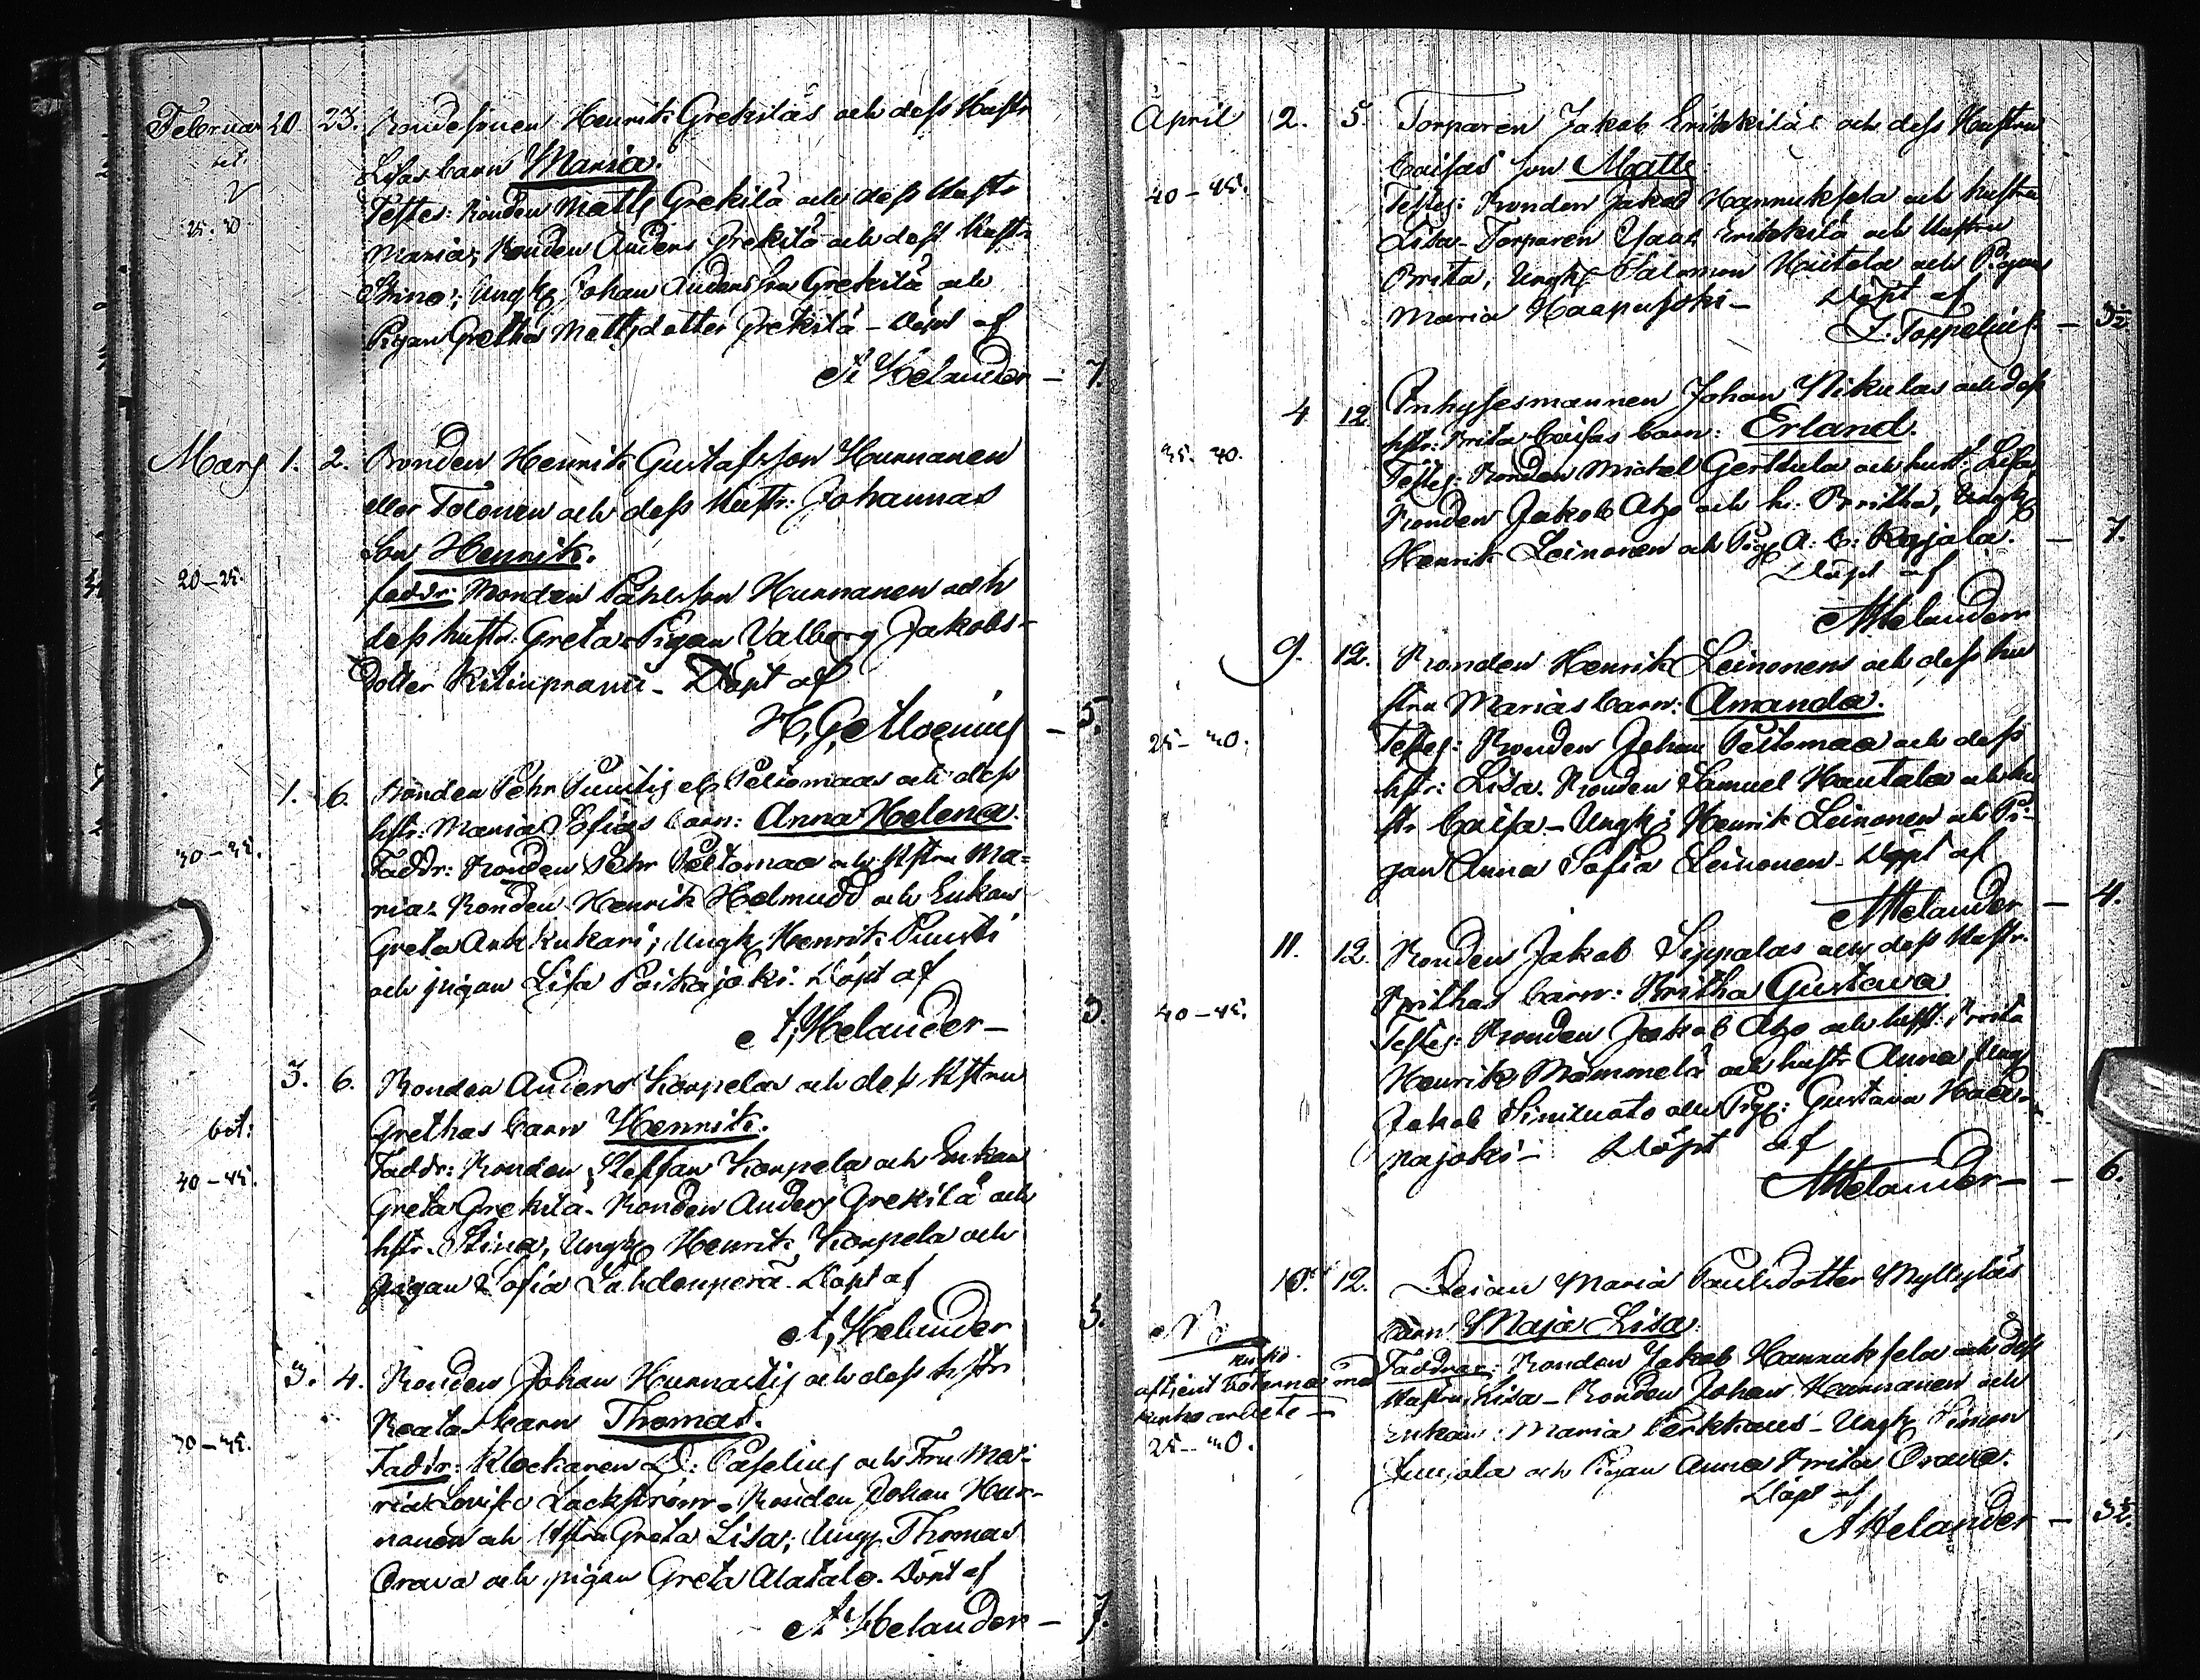 Februar 20. 23. Bondesonen Henrik Grekiläs och dess Hustr
Lisas barn Maria.
Testes: Bonden Matts Grekilä och dess Hustr
25-30
Maria; Bonden Anders Grekilä och dess Hustr
Stina; Ungk Johan Andersson Grekilä och
Pigan Gretha Mattsdotter Grekilä - Döpt af
A Helander - 7.
Mars 1. 2. Bonden Henrik Gustafsson Hurnanen
eller Tolonen och dess Hustr: Johannas
Son Henrik.
20-25.
faddr: Bonden Påhlsson Hurnanen och
dess hustr: Greta - Pigan Valborg Jakobs-
dotter - Döpt af
- 5.
1. 6. Bonden Pehr Puustis el Peltomaas och dess
hstr: Maria Sofias barn: Anna Helena.
30-35.
Faddr: Bonden Pehr Peltomaa och Hstru Ma-
ria - Bonden Henrik Helmudd och Enkan
Greta Ankkukari; Ungk Henrik Puusti
och pigan Lisa Poikajoki. Döpt af
A, Helander - 3.
3. 6. Bonden Anders Korpelas och dess Hstru
Grethas barn Henrik.
bet:
Faddr: Bonden Steffan Korpela och Enkan
40-45.
Greta Grekilä. Bonden Anders Grekilä och
hstr. Stina, Ungk Henrik Korpela och
pigan Sofia Lahdenperä. Döpt af
A, Helander 5.
3. 4. Bonden Johan Hurnastis och dess hstr
Beatas barn Thomas.
30-35.
Faddr: Klockaren D: Caselius och Fru Ma-
ria Lovisa Lackström - Bonden Johan Hur-
nanen och Hstru Greta Lisa; Ungk Thomas
Orava och pigan Greta Alatalo. Döpt af
A Helander - 7.
April 2. 5. Torparen Jakob Erikkiläs och dess Hustru
Caisas son Matts
40-45.
Testes: Bonden Jakob Hannuksela och hustru
Lisa - Torparen Isaak Erikkilä och Hustru
Brita, Ungk Salomon Hietala och Pigan
Maria Haapuskoski - Döpt af
Z. Toppelius - 3½
4 12 Inhysesmannen Johan Nikulas och dess
hstr: Brita Caisas barn: Erland.
35-40.
Testes: Bonden Michel Gerttula och hust: Lisa,
Bonden Jakob Aho och h: Britha, Ungk
Henrik Leinonen och Pig A: C: Rajala. - 7.
Döpt af
AHelander
9. 12. Bonden Henrik Leinonens och dess hu
stru Marias barn: Amanda.
25-30.
Testes: Bonden Johan Peltomaa och dess
hstr: Lisa. Bonden Samuel Hautala och hu
str Caisa - Ungk: Henrik Leinonen och Pi-
gan Anna Sofia Leinonen - Döpt af
AHelander - 4.
11. 12. Bonden Jakob Sippalas och dess Hustr.
Brithas barn: Britha Gustava
40-45.
Testes: Bonden Jakob Aho och hust: Brita
Henrik Mämmelä och hustr Anna, Ungk
Jakob Siniluoto och Pig: Gustava Haa-
pajoki - Döpt af
AHelander - - 6.
10. 12. Deian Maria Paulsdotter Myllyläs
barn Maja Lisa.
NB
Faddrar: Bonden Jakob Hannuksela och dess
Hustru Lisa - Bonden Johan Hurnanen och
Enkan Maria Perkkaus - Ungk Simon
25-30.
Junjola och Pigan Anna Brita Orava.
Döpt af
AHelander - 3½.